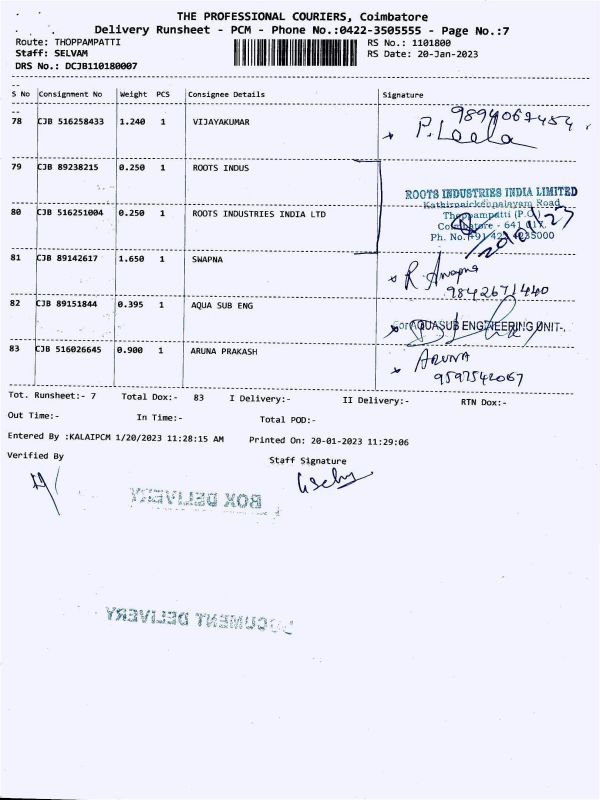 THE PROFESSIONAL COURIERS, Coimbatore
Delivery Runsheet - PCM - Phone No.:0422-3505555 - Page No.:7
Route: THOPPAMPATTI
RS No.: 1101800
Staff: SELVAM
RS Date: 20-Jan-2023
DRS No.: DCJB110180007
S No Consignment No Weight PCS Consignee Details Signature
78 CJB 516258433 1.240 1 VIJAYAKUMAR
P. Leela
79 CJB 89238215 0.250 1 ROOTS INDUS
ROOTS INDUSTRIES INDIA LIMITED
Kathirnaickenpalayam Road
80 CJB 516251004 0.250 1 ROOTS INDUSTRIES INDIA LTD
Thoppampatti (P.O.)
Coimbatore - 641 017.
Ph. No. +91 422 4235000
81 CJB 89142617 1.650 1 SWAPNA
R
9842671440
82 CJB 89151844 0.395 1 AQUA SUB ENG
For AQUASUB ENGINEERING UNIT-
83 CJB 516026645 0.900 1 ARUNA PRAKASH
ARUNA
9597542067
Tot. Runsheet:- 7 Total Dox:- 83 I Delivery:- II Delivery:- RTN Dox:-
Out Time:- In Time:- Total POD:-
Entered By :KALAIPCM 1/20/2023 11:28:15 AM Printed On: 20-01-2023 11:29:06
Verified By Staff Signature
BOX DELIVERY
DOCUMENT DELIVERY